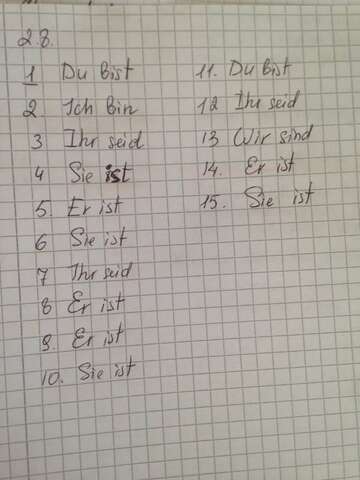 2.8.
1 Du bist
2. Ich bin
3 Ihr seid
4 Sie ist
5. Er ist
6 Sie ist
7 Ihr seid
8 Er ist
9. Er ist
10. Sie ist
11. Du bist
12 Ihr seid
13 Wir sind
14. Er ist
15. Sie ist